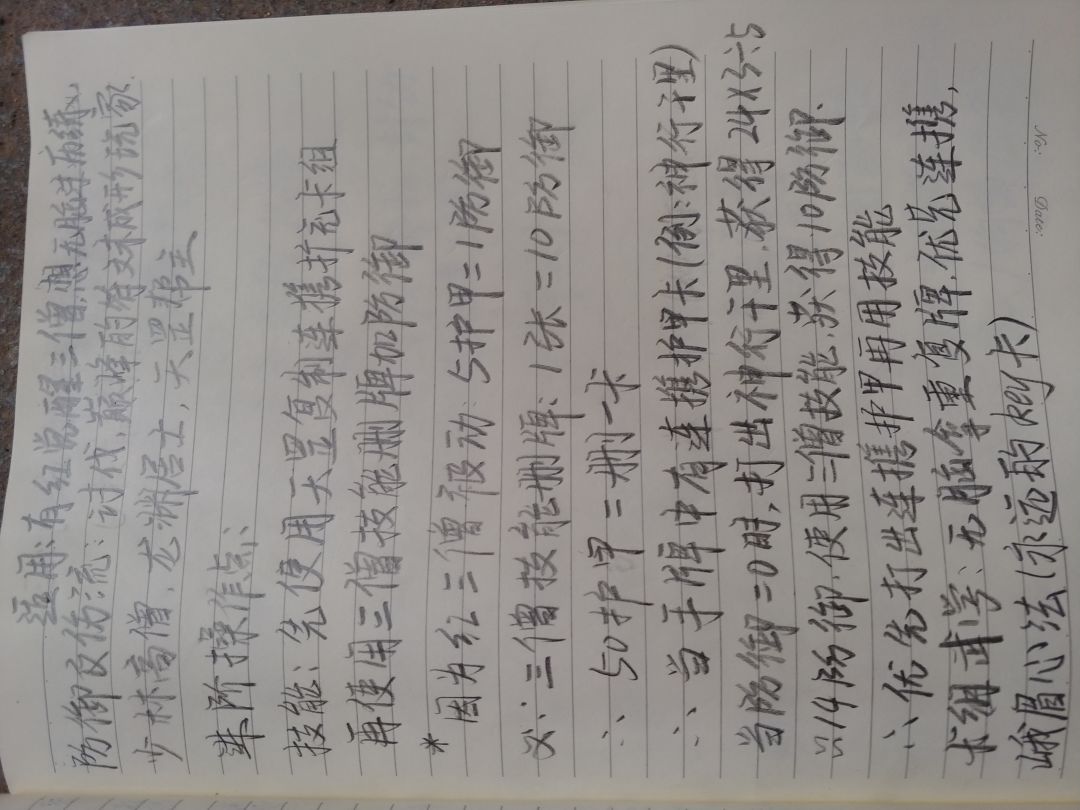 适用:有红觉醒三僧,想无脑
防御反伤流:讨伐,巅峰的尚未成形玩家
少林高僧,龙渊居士,天罡帮主
进阶操作点:
技能:先使用天罡复制连携扩充卡组
再使用三僧技能删牌加防御
* 因为红三僧被动:5护甲=1防御
又∵三僧技能删牌:1张=10防御
∴50护甲=删一卡
∴当手牌中有连携护甲卡(例:神行千里)
当防御=0时,打出神行千里,获得24
∴14防御,使用三僧技能,获得10防御.
∴优先打出连携护甲再用技能
卡组武学:无脑拿重复牌,优先连携,
峨眉心法(永远的key卡)
No:
Date: